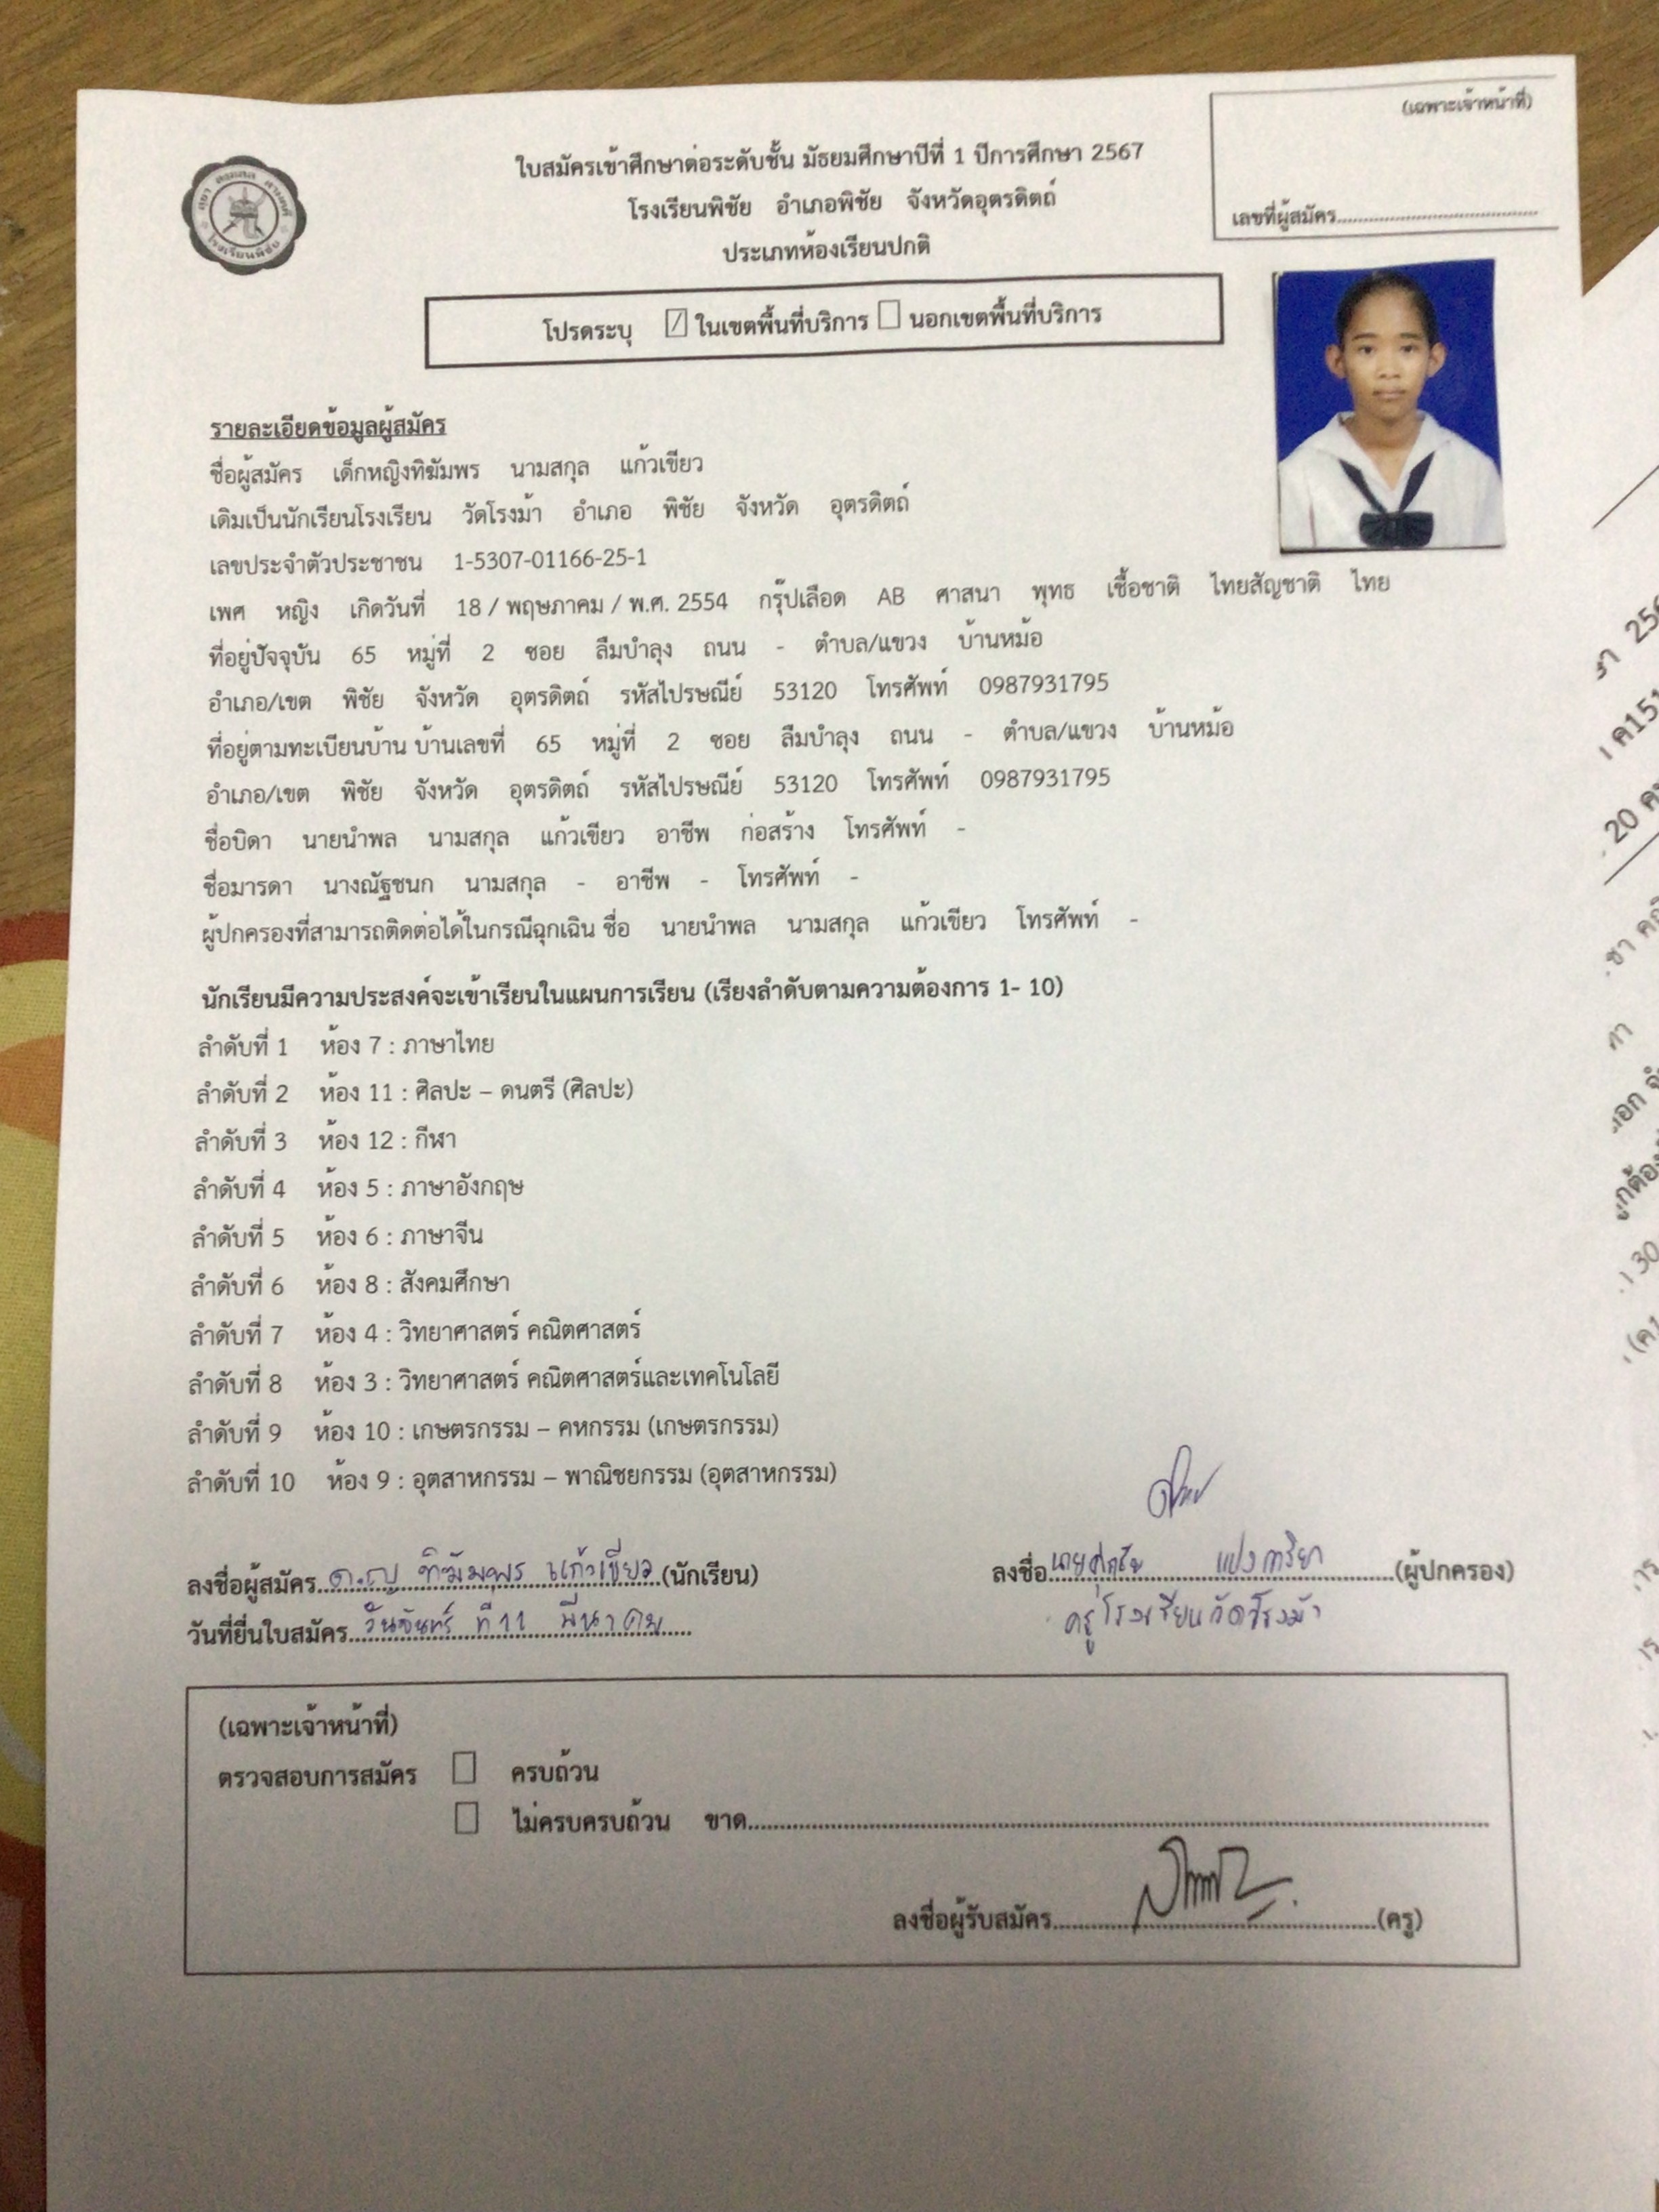 (เฉพาะเจ้าหน้าที่)
ใบสมัครเข้าศึกษาต่อระดับชั้น มัธยมศึกษาปีที่ 1 ปีการศึกษา 2567
โรงเรียนพิชัย อำเภอพิชัย จังหวัดอุตรดิตถ์
เลขที่ผู้สมัคร
ประเภทห้องเรียนปกติ
โรงเรียนพิชัย
โปรดระบุ ☑ ในเขตพื้นที่บริการ ☐ นอกเขตพื้นที่บริการ
รายละเอียดข้อมูลผู้สมัคร
ชื่อผู้สมัคร เด็กหญิงทิฆัมพร นามสกุล แก้วเขียว
เดิมเป็นนักเรียนโรงเรียน วัดโรงม้า อำเภอ พิชัย จังหวัด อุตรดิตถ์
เลขประจำตัวประชาชน 1-5307-01166-25-1
เพศ หญิง เกิดวันที่ 18 / พฤษภาคม / พ.ศ. 2554 กรุ๊ปเลือด AB ศาสนา พุทธ เชื้อชาติ ไทยสัญชาติ ไทย
ที่อยู่ปัจจุบัน 65 หมู่ที่ 2 ซอย ลืมบำลุง ถนน - ตำบล/แขวง บ้านหม้อ
อำเภอ/เขต พิชัย จังหวัด อุตรดิตถ์ รหัสไปรษณีย์ 53120 โทรศัพท์ 0987931795
ที่อยู่ตามทะเบียนบ้าน บ้านเลขที่ 65 หมู่ที่ 2 ซอย ลืมบำลุง ถนน - ตำบล/แขวง บ้านหม้อ
อำเภอ/เขต พิชัย จังหวัด อุตรดิตถ์ รหัสไปรษณีย์ 53120 โทรศัพท์ 0987931795
ชื่อบิดา นายนำพล นามสกุล แก้วเขียว อาชีพ ก่อสร้าง โทรศัพท์ -
ชื่อมารดา นางณัฐชนก นามสกุล - อาชีพ - โทรศัพท์ -
ผู้ปกครองที่สามารถติดต่อได้ในกรณีฉุกเฉิน ชื่อ นายนำพล นามสกุล แก้วเขียว โทรศัพท์ -
นักเรียนมีความประสงค์จะเข้าเรียนในแผนการเรียน (เรียงลำดับตามความต้องการ 1- 10)
ลำดับที่ 1 ห้อง 7 : ภาษาไทย
ลำดับที่ 2 ห้อง 11 : ศิลปะ – ดนตรี (ศิลปะ)
ลำดับที่ 3 ห้อง 12 : กีฬา
ลำดับที่ 4 ห้อง 5 : ภาษาอังกฤษ
ลำดับที่ 5 ห้อง 6 : ภาษาจีน
ลำดับที่ 6 ห้อง 8 : สังคมศึกษา
ลำดับที่ 7 ห้อง 4 : วิทยาศาสตร์ คณิตศาสตร์
ลำดับที่ 8 ห้อง 3 : วิทยาศาสตร์ คณิตศาสตร์และเทคโนโลยี
ลำดับที่ 9 ห้อง 10 : เกษตรกรรม – คหกรรม (เกษตรกรรม)
ลำดับที่ 10 ห้อง 9 : อุตสาหกรรม – พาณิชยกรรม (อุตสาหกรรม)
ลงชื่อผู้สมัคร ด.ญ ทิฆัมพร แก้วเขียว (นักเรียน) ลงชื่อ (ผู้ปกครอง)
วันที่ยื่นใบสมัคร วันจันทร์ ที่ 11 มีนาคม ครูโรงเรียนวัดโรงม้า
(เฉพาะเจ้าหน้าที่)
ตรวจสอบการสมัคร ☐ ครบถ้วน
☐ ไม่ครบครบถ้วน ขาด
ลงชื่อผู้รับสมัคร (ครู)